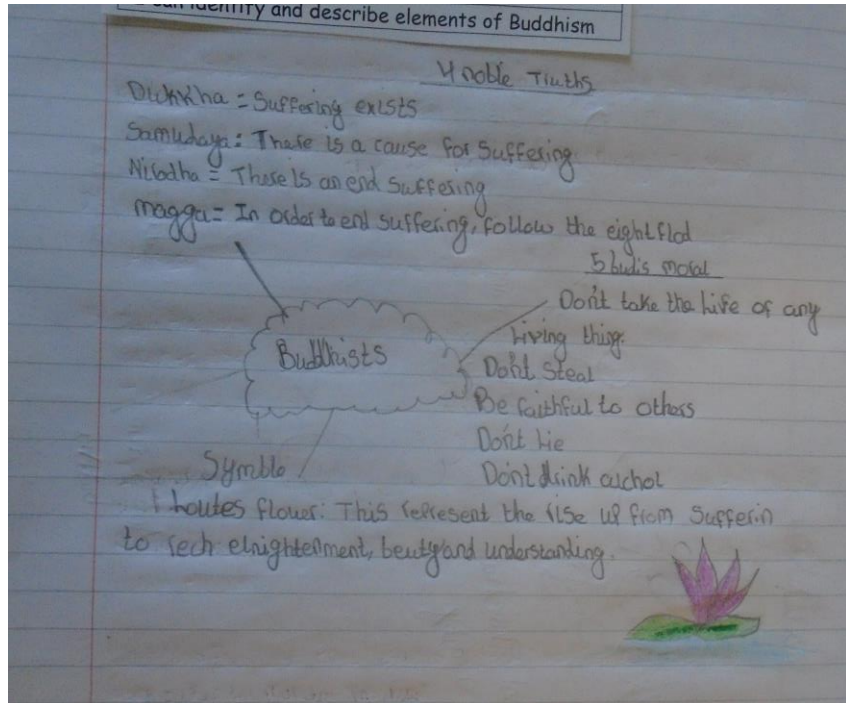 identify and describe elements of Buddhism
4 noble Truths
Dukkha = Suffering exists
Samudaya: There is a cause for suffering.
Nirodha = There is an end suffering
magga = In order to end suffering, follow the eightflod
5 budis moral
Don't take the life of any
living thing.
Buddhists
Don't steal
Be faithful to others
Don't lie
Symble
Don't drink auchol
houtes flower: This represent the rise up from Sufferin
to rech elnightenment, beuty and understanding.